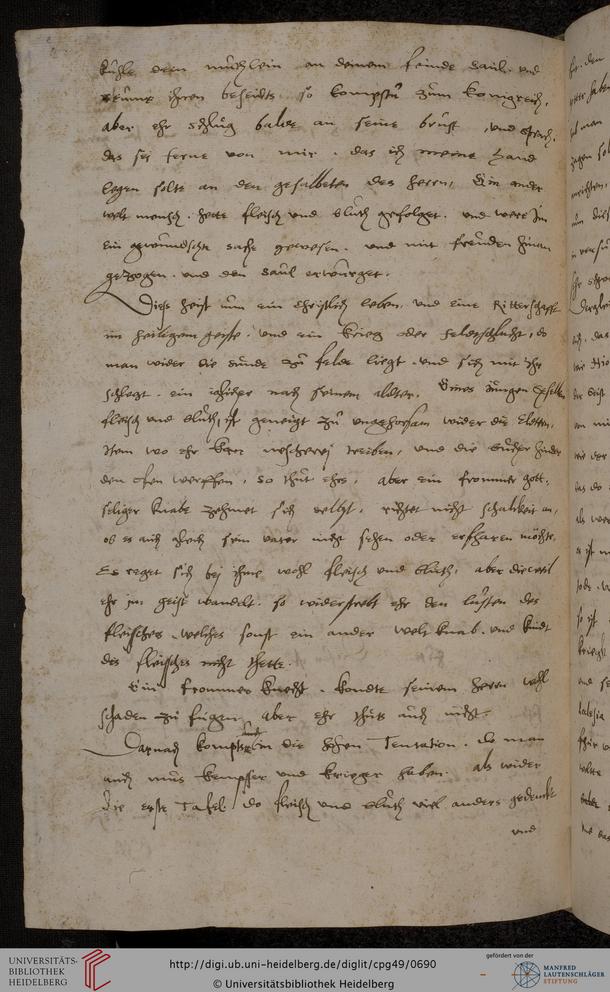 kuhle dein mutlein an deinem feinde Saul. und
ihren so kompstu zum konigreich,
aber ehr schlug balde an seine brust, und sprach.
das sei ferne von mir. das ich meine hand
legen solte an den gesalbeten des herrn, Ein ander
welt mensch. hette fleisch und bluth gefolget. und were im
ein gewunschte sache gewesen. und mit freuden hinan
gezogen. und den Saul erwurget.
Dies heist nun ein christlich leben, und eine Ritterschafft
im heiligem geiste. und ein krieg oder feldtschlacht, do
man wider die sunde zu felde liegt. und sich mit ihr
schlegt. ein ihider nach seinem alder. Eines jungen gesellen
fleisch und bluth, ist geneigt zu ungehorsam wider die Eltern.
Item wo ehr kan nescherei treiben, und die bucher hinder
den ofen werffen, so thut ehrs, aber ein frommer gott-
seliger knabe zehmet sich selbst, richtet nicht schalckeit an,
ob es auch gleich sein vater nicht sehen oder erfharen möchte.
Es reget sich bej ihme wohl fleisch und bluth, aber dieweil
ehr im geist wandelt. so widerstrebt ehr den lusten des
fleisches. welches sonst ein ander welt knab. und kindt
des fleisches nicht thette.
Ein frommer knecht. kondte seinem herrn wohl
schaden zu fugen, aber ehr thuts auch nicht.
Darnach kompts auch in die hohen Tentation. do man
auch mus kempffer und krieger haben. als wider
die erste Tafel. do fleisch und bluth viel anders gedenckt
und
UNIVERSITÄTS-
BIBLIOTHEK
HEIDELBERG
http://digi.ub.uni-heidelberg.de/diglit/cpg49/0690
© Universitätsbibliothek Heidelberg
gefördert von der
MANFRED
LAUTENSCHLÄGER
STIFTUNG